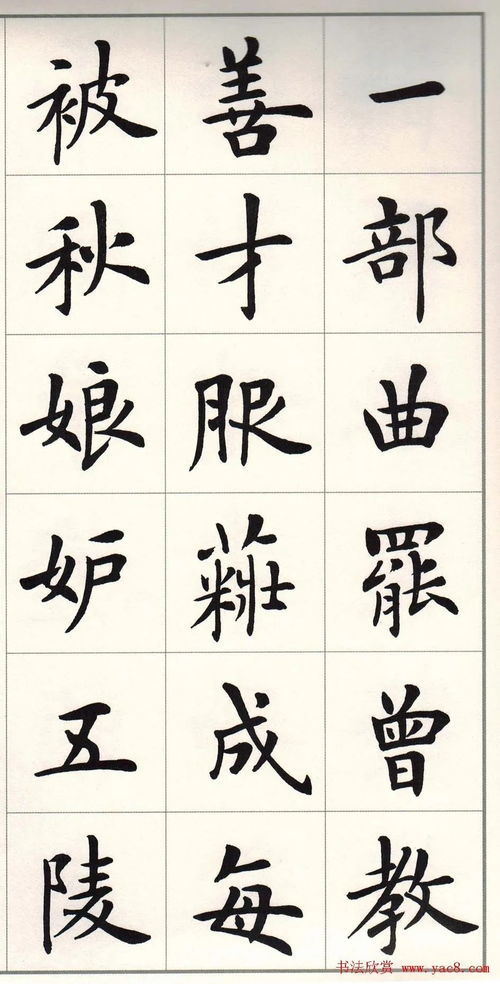 一部曲罷曾教
善才服糚成每
被秋娘妒五陵
书法欣赏 www.yac8.com